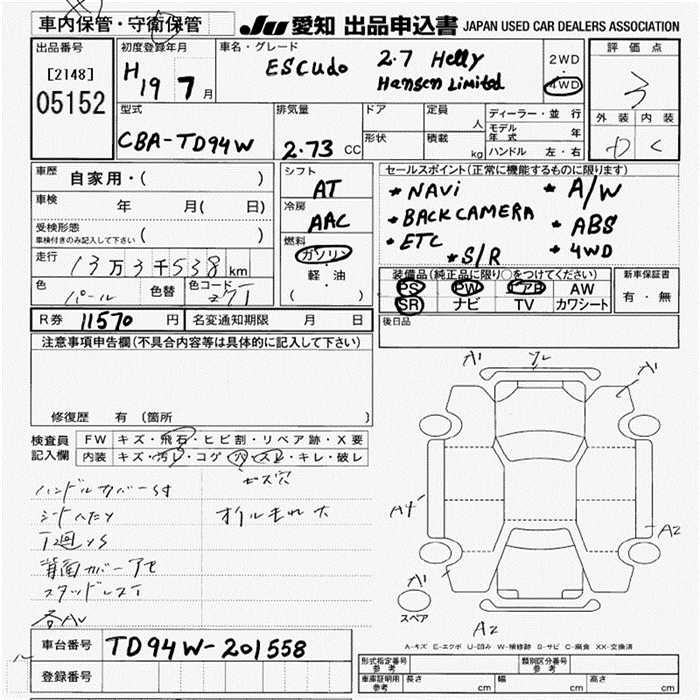 車内保管・守衛保管
JU 愛知 出品申込書 JAPAN USED CAR DEALERS ASSOCIATION
出品番号
[2148]
05152
初度登録年月
H19 7月
車名・グレード
ESCudo 2.7 Helly
Hansen Limited
2WD
・
4WD
評価点
3
外装 内装
D C
型式
CBA-TD94W
排気量
2.73 CC
ドア
形状
定員
人
積載
kg
ディーラー・並行
モデル年式 年
ハンドル 左・右
車歴
自家用・( )
車検
年 月( 日)
受検形態
車検付きのみ記入して下さい ( )
走行
13万3千538km
色
パール
色替
色コード
Z7T
シフト
AT
冷房
AAC
燃料
ガソリン
・
軽・油
( )
セールスポイント(正常に機能するものに限ります)
* NAVi
* BACK CAMERA
* ETC
* S/R
* A/W
* ABS
* 4WD
装備品(純正品に限り○をつけてください)
PS PW エアB AW
SR ナビ TV カワシート
新車保証書
有・無
R券 11570 円
名変通知期限 月 日
後日品
注意事項申告欄(不具合内容等は具体的に記入して下さい)
修復歴 有(箇所 )
検査員記入欄
FW キズ・飛石・ヒビ割・リペア跡・X要
内装 キズ・汚レ・コゲ・穴・スレ・キレ・破レ
ビス穴
ハンドルカバーSキ
シートヘタリ
オイルもれ大
下廻りS
背面カバーアセ
スタッドレスT
各AU
A1
A1
A4
A2
A1
スペア
A2
A-キズ E-エクボ U-凹み W-補修跡 S-サビ C-腐食 XX-交換済
車台番号 TD94W-201558
登録番号
型式指定番号 参考
類別区分番号 参考
車庫証明用 参考 長さ cm 幅 cm 高さ cm